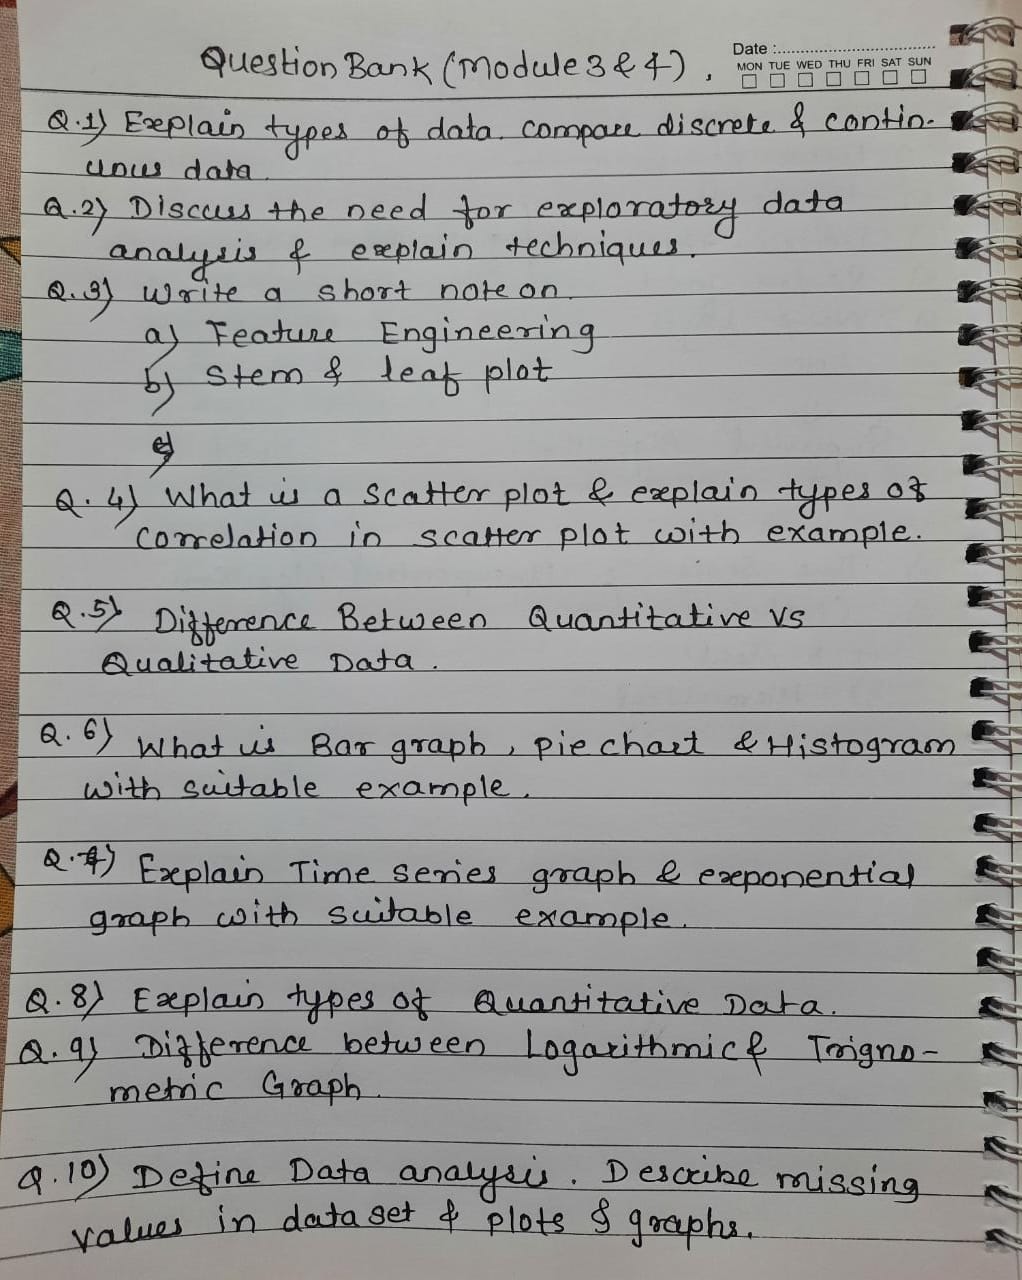 Question Bank (Module 3 & 4).
Date :
MON TUE WED THU FRI SAT SUN
Q.1) Explain types of data. compare discrete & contin-
uous data.
Q.2) Discuss the need for exploratory data
analysis & explain techniques.
Q.3) Write a short note on.
a) Feature Engineering
b) Stem & leaf plot
Q.4) What is a scatter plot & explain types of
Correlation in scatter plot with example.
Q.5) Difference Between Quantitative vs
Qualitative Data.
Q.6) What is Bar graph, pie chart & Histogram
with suitable example.
Q.7) Explain Time series graph & exponential
graph with suitable example.
Q.8) Explain types of Quantitative Data.
Q.9) Difference between Logarithmic & Trigno-
metric Graph.
Q.10) Define Data analysis. Describe missing
values in data set & plots & graphs.